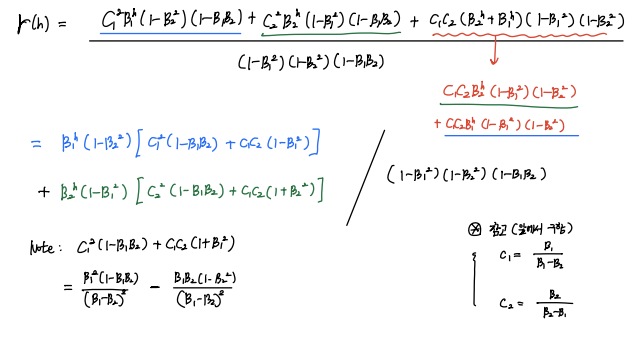 γ(h) = C₁²B₁ʰ(1-B₂²)(1-B₁B₂) + C₂²B₂ʰ(1-B₁²)(1-B₁B₂) + C₁C₂(B₂ʰ+B₁ʰ)(1-B₁²)(1-B₂²)
(1-B₁²)(1-B₂²)(1-B₁B₂)
C₁C₂B₂ʰ(1-B₁²)(1-B₂²)
+ C₁C₂B₁ʰ(1-B₁²)(1-B₂²)
= B₁ʰ(1-B₂²)[C₁²(1-B₁B₂) + C₁C₂(1-B₁²)]
+ B₂ʰ(1-B₁²)[C₂²(1-B₁B₂) + C₁C₂(1+B₂²)]
/ (1-B₁²)(1-B₂²)(1-B₁B₂)
Note: C₁²(1-B₁B₂) + C₁C₂(1+B₁²)
= B₁²(1-B₁B₂)/(B₁-B₂)² - B₁B₂(1-B₂²)/(B₁-B₂)²
※ 참고 (앞에서 구함)
C₁ = B₁/(B₁-B₂)
C₂ = B₂/(B₂-B₁)